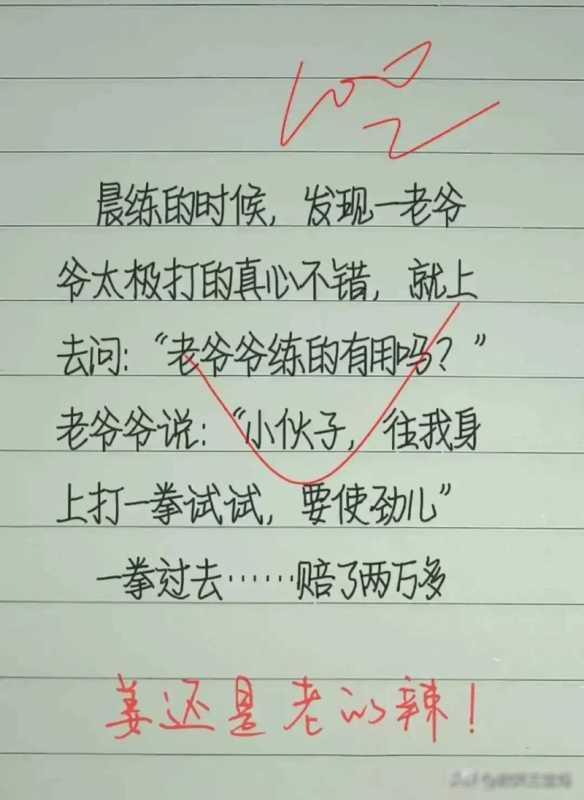 100
晨练的时候，发现一老爷
爷太极打的真心不错，就上
去问：“老爷爷练的有用吗？”
老爷爷说：“小伙子，往我身
上打一拳试试，要使劲儿”
一拳过去……赔了两万多
姜还是老的辣！